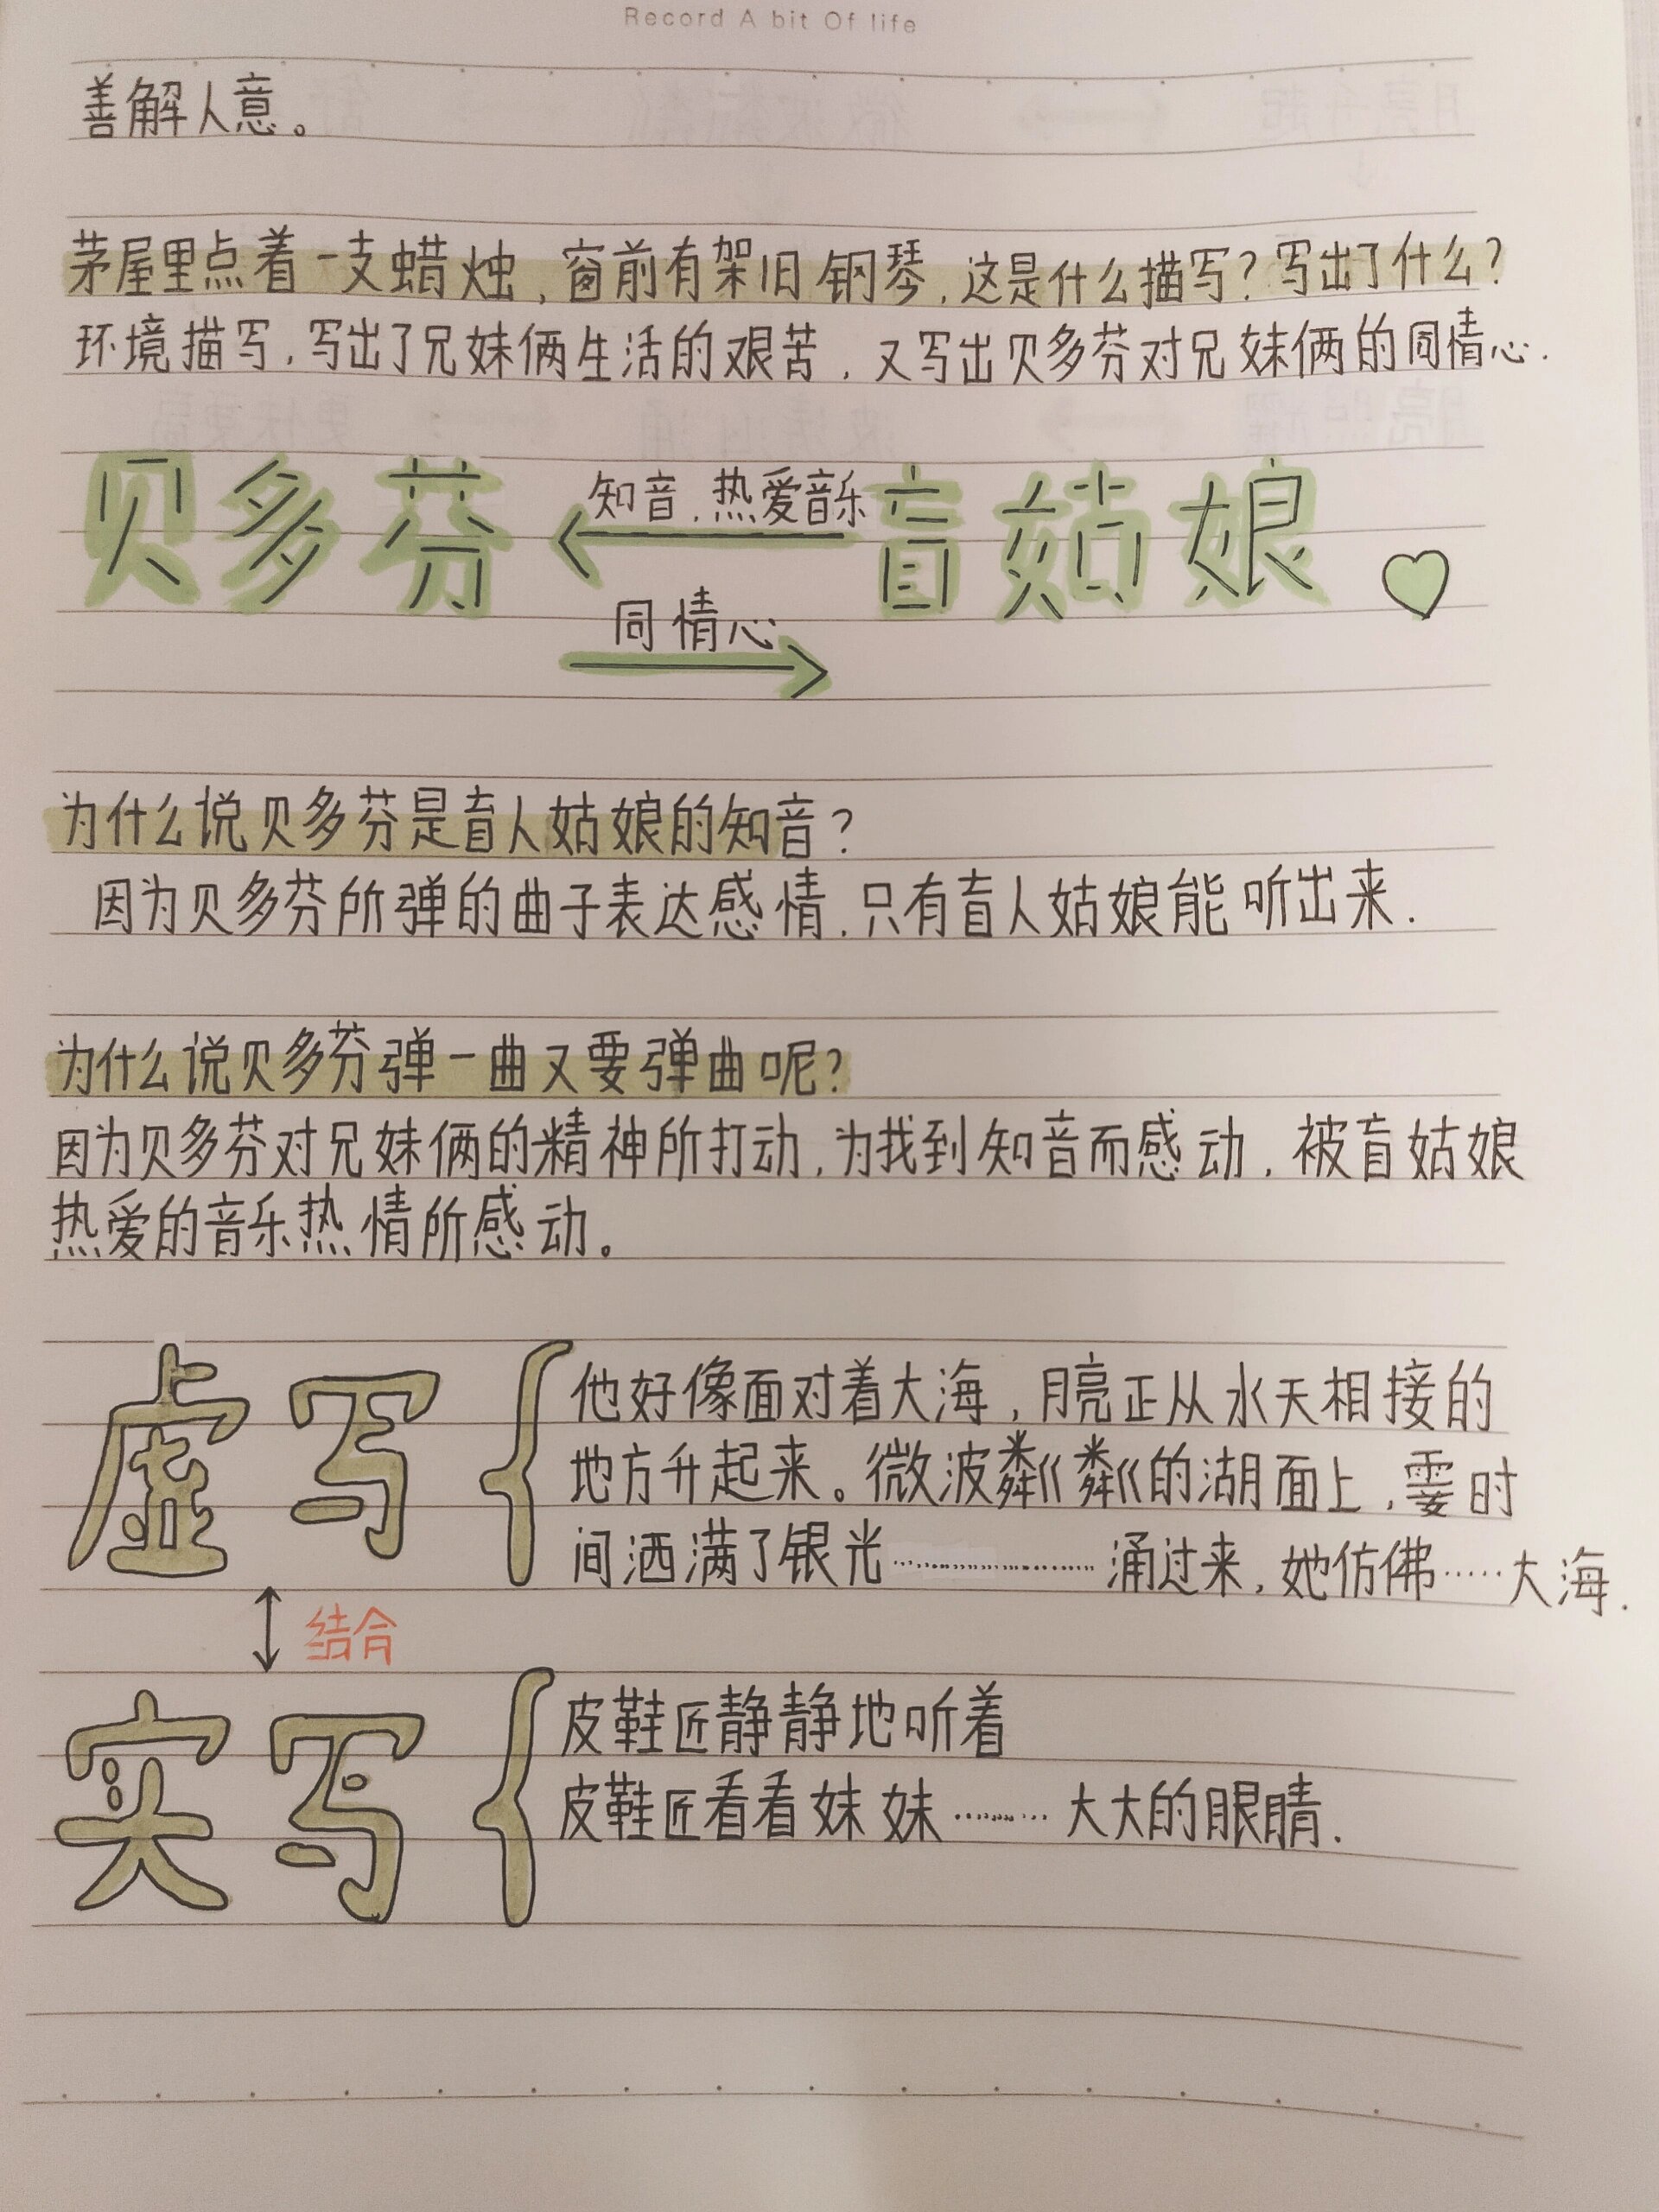 Record A bit Of life
善解人意。
茅屋里点着一支蜡烛，窗前有架旧钢琴，这是什么描写？写出了什么？
环境描写，写出了兄妹俩生活的艰苦，又写出贝多芬对兄妹俩的同情心.
贝多芬 知音，热爱音乐 盲姑娘
同情心
为什么说贝多芬是盲人姑娘的知音？
因为贝多芬所弹的曲子表达感情，只有盲人姑娘能听出来.
为什么说贝多芬弹一曲又要弹曲呢？
因为贝多芬对兄妹俩的精神所打动，为找到知音而感动，被盲姑娘
热爱的音乐热情所感动。
虚写 他好像面对着大海，月亮正从水天相接的
地方升起来。微波粼粼的湖面上，霎时
间洒满了银光………………涌过来，她仿佛……大海.
结合
实写 皮鞋匠静静地听着
皮鞋匠看看妹妹………大大的眼睛.